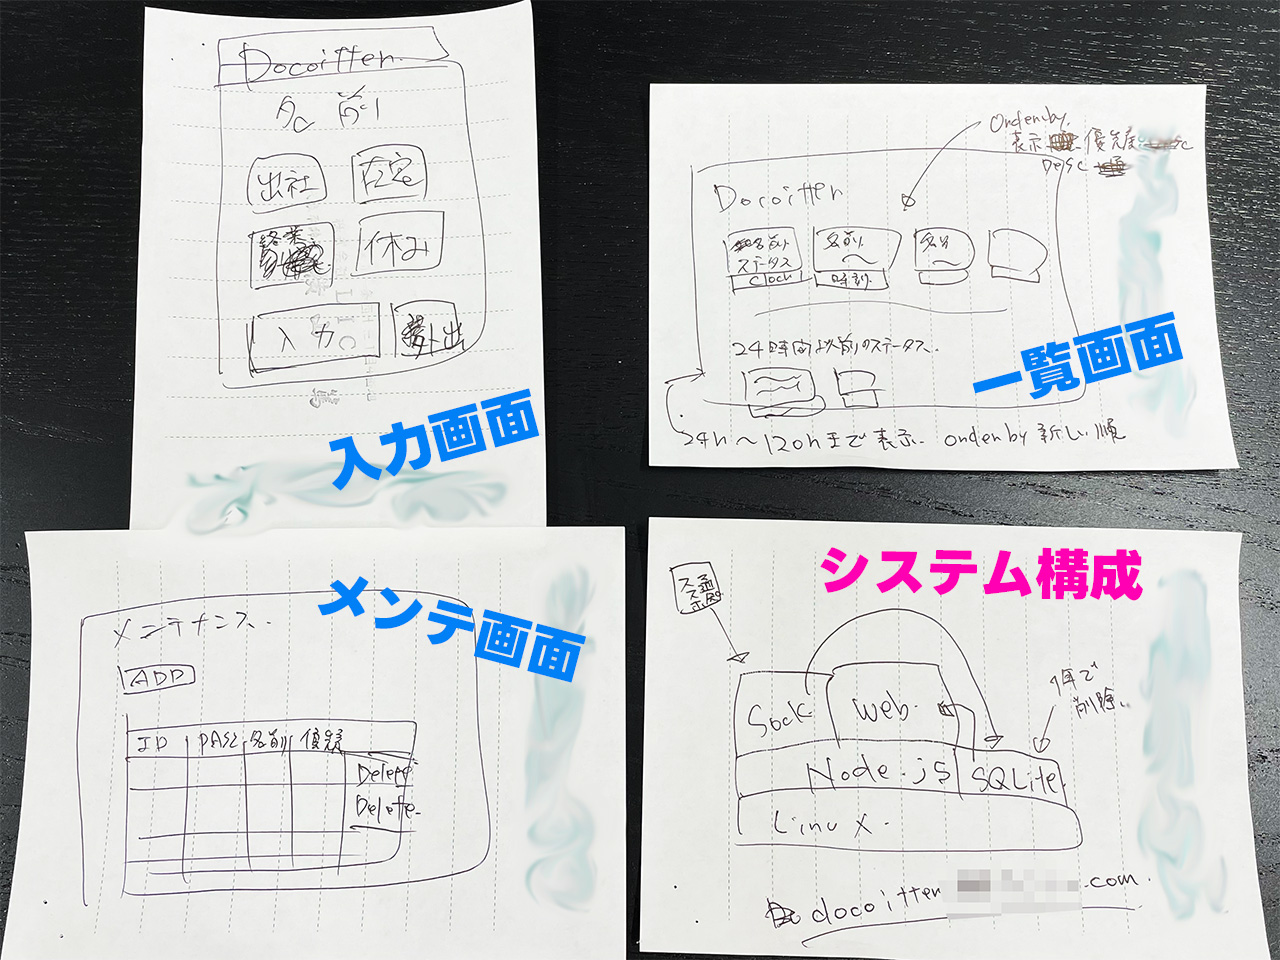 Docoitter
名前
出社
在宅
終業
休み
入力
外出
入力画面
Orderby
表示 優先度
DESC
Docoitter
名前
ステータス
Clock
名前
〜
時刻
名前
〜
24時間以前のステータス
一覧画面
24h〜120hまで表示 orderby 新しい順
メンテナンス
メンテ画面
ADD
ID
PASS
名前
優先
Delete
Delete
システム構成
スマホ
Sock
Web
1年で
削除
Node.js
SQLite
Linux
docoitter
.com